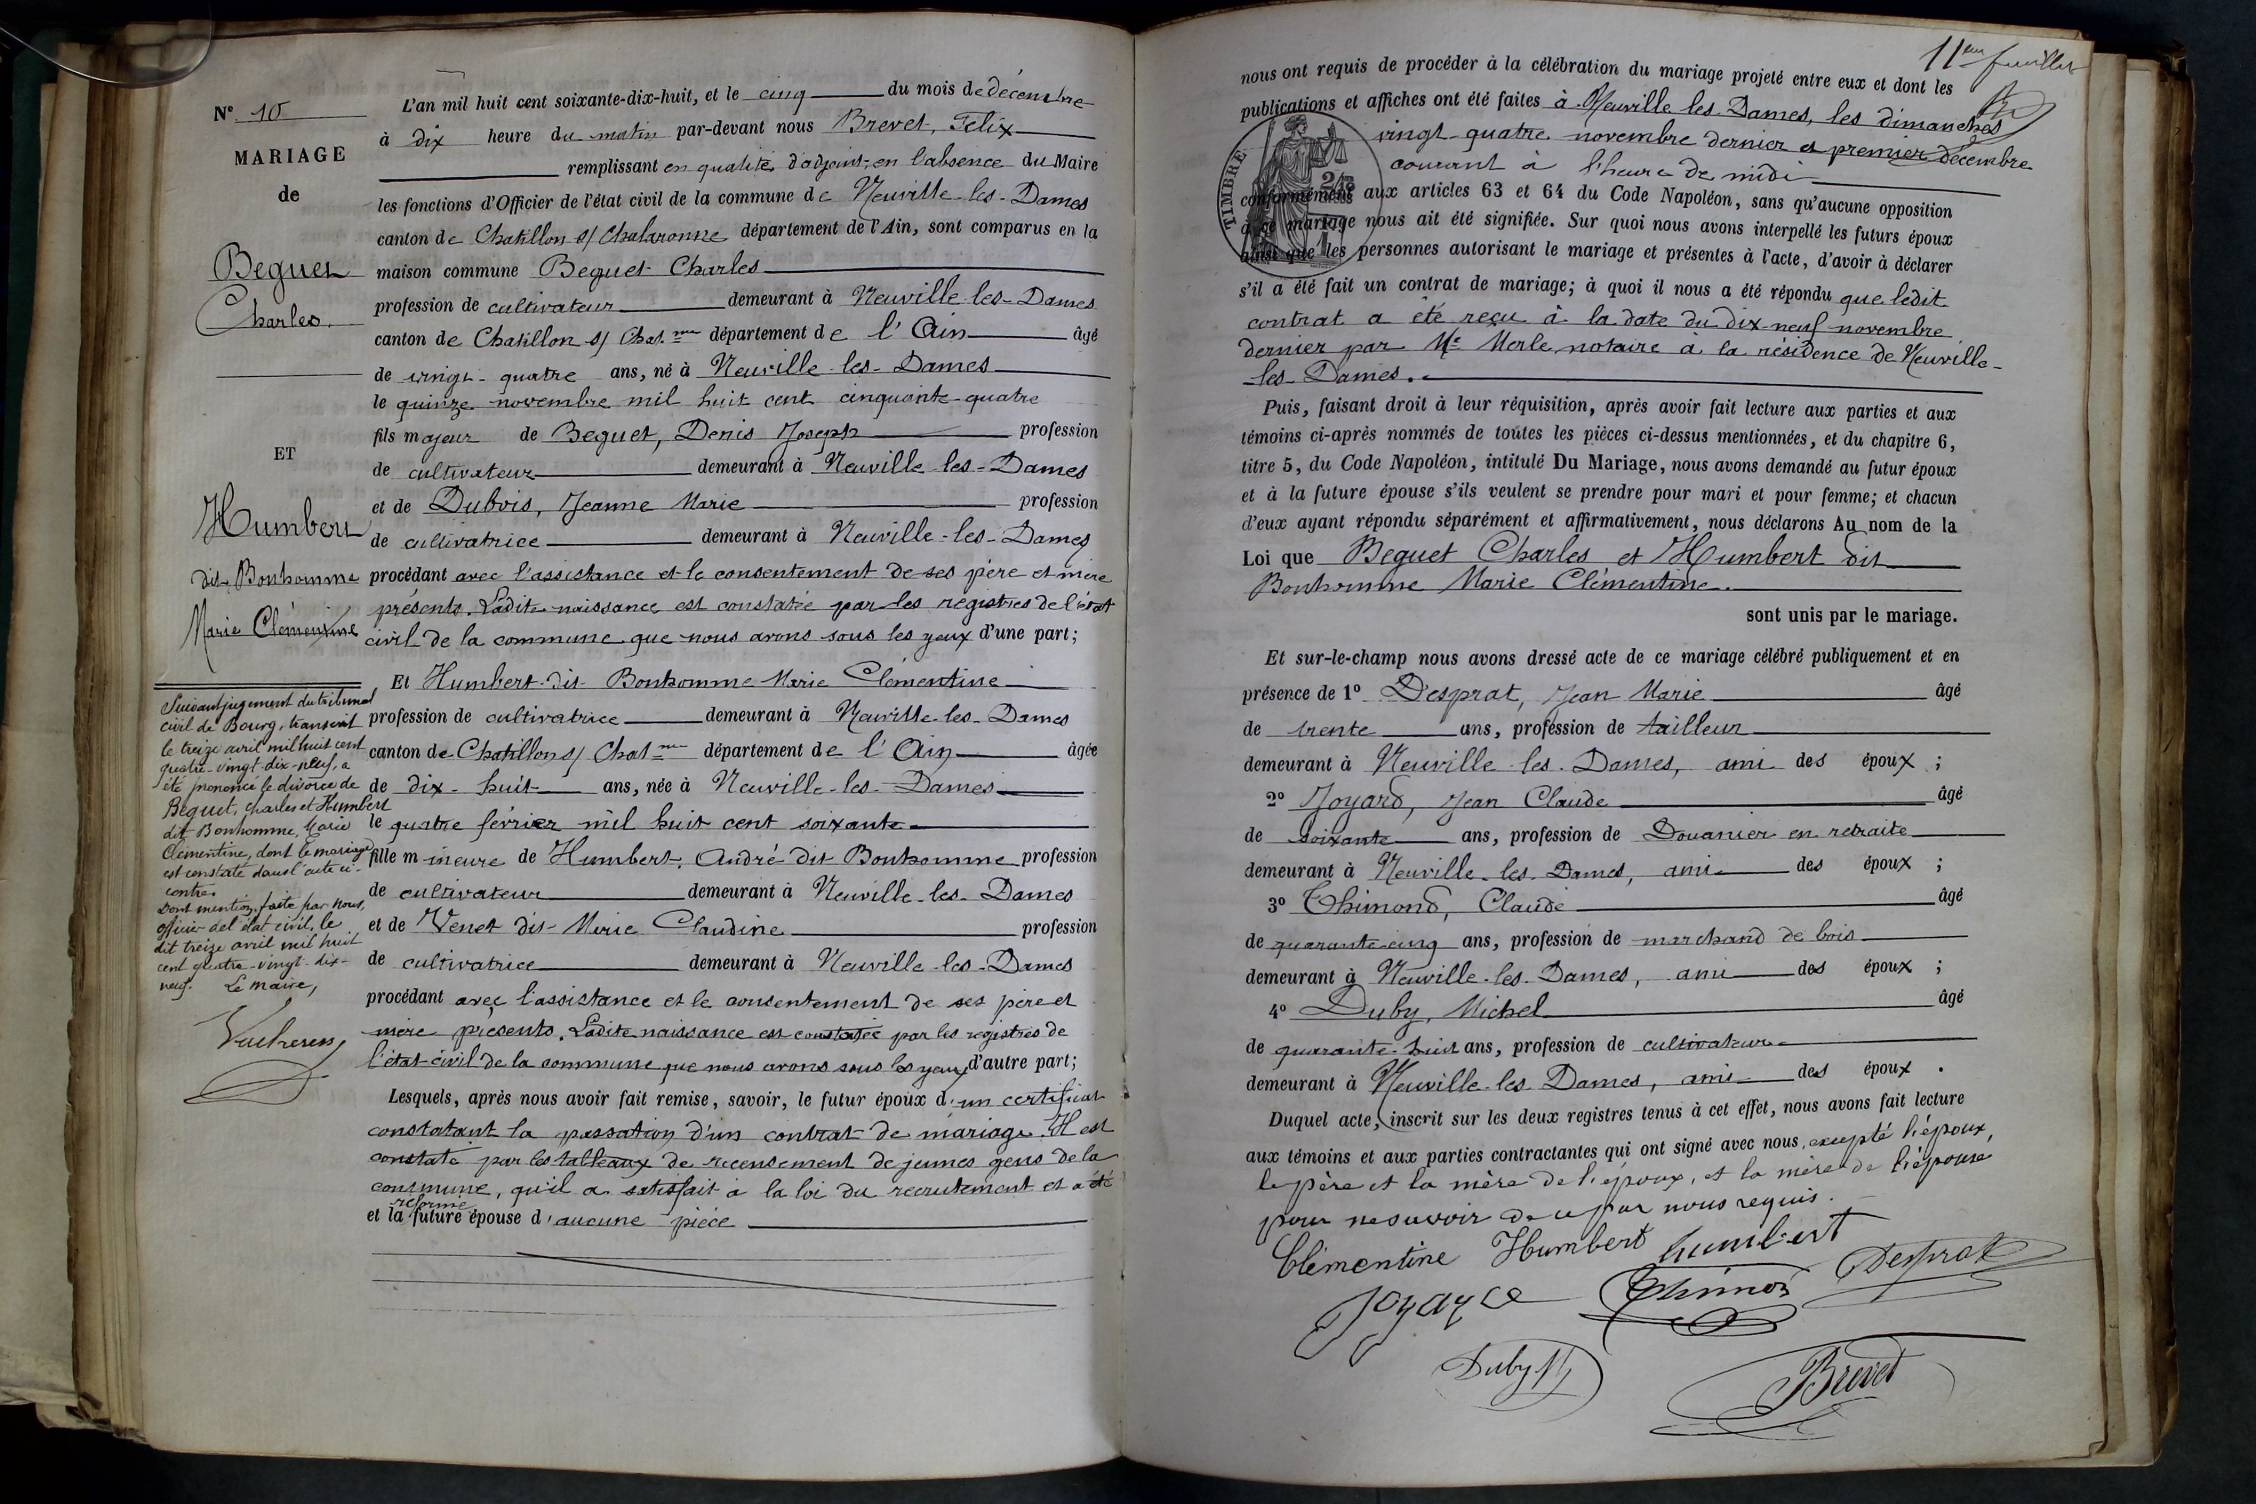 N° 10
MARIAGE
de
Beguet
Charles.
ET
Humbert
dit Bonhomme
Marie Clémentine
Suivant jugement du tribunal
civil de Bourg, transcrit
le treize avril mil huit cent
quatre-vingt-dix-neuf, a
été prononcé le divorce de
Beguet, Charles et Humbert
dit Bonhomme, Marie
Clémentine, dont le mariage
est constaté dans l'acte ci-
contre.
Dont mention faite par nous,
officier de l'état civil, le
dit treize avril mil huit
cent quatre-vingt-dix-
neuf. Le Maire,
L'an mil huit cent soixante-dix-huit, et le cinq du mois de décembre
à dix heure du matin par-devant nous Brevet, Felix
remplissant en qualité d'adjoint en l'absence du Maire
les fonctions d'Officier de l'état civil de la commune de Neuville-les-Dames
canton de Chatillon s/ Chalaronne département de l'Ain, sont comparus en la
maison commune Beguet Charles
profession de cultivateur demeurant à Neuville-les-Dames
canton de Chatillon s/ Chal.nne département de l'Ain âgé
de vingt-quatre ans, né à Neuville-les-Dames
le quinze novembre mil huit cent cinquante-quatre
fils majeur de Beguet, Denis Joseph profession
de cultivateur demeurant à Neuville-les-Dames
et de Dubois, Jeanne Marie profession
de cultivatrice demeurant à Neuville-les-Dames
procédant avec l'assistance et le consentement de ses père et mère
présents. Ladite naissance est constatée par les registres de l'état
civil de la commune que nous avons sous les yeux d'une part;
Et Humbert dit Bonhomme Marie Clémentine
profession de cultivatrice demeurant à Neuville-les-Dames
canton de Chatillon s/ Chal.nne département de l'Ain âgée
de dix-huit ans, née à Neuville-les-Dames
le quatre février mil huit cent soixante
fille mineure de Humbert, André dit Bonhomme profession
de cultivateur demeurant à Neuville-les-Dames
et de Venet dit Merie Claudine profession
de cultivatrice demeurant à Neuville-les-Dames
procédant avec l'assistance et le consentement de ses père et
mère présents. Ladite naissance est constatée par les registres de
l'état-civil de la commune que nous avons sous les yeux d'autre part;
Lesquels, après nous avoir fait remise, savoir, le futur époux d'un certificat
constatant la passation d'un contrat de mariage. Il est
constaté par les tableaux de recensement de jeunes gens de la
commune, qu'il a satisfait à la loi du recrutement et a été
réformé
et la future épouse d'aucune pièce
11eme feuillet
nous ont requis de procéder à la célébration du mariage projeté entre eux et dont les
publications et affiches ont été faites à Neuville-les-Dames, les dimanches
vingt-quatre novembre dernier et premier décembre
courant à l'heure de midi
TIMBRE
conformément aux articles 63 et 64 du Code Napoléon, sans qu'aucune opposition
à ce mariage nous ait été signifiée. Sur quoi nous avons interpellé les futurs époux
ainsi que les personnes autorisant le mariage et présentes à l'acte, d'avoir à déclarer
s'il a été fait un contrat de mariage; à quoi il nous a été répondu que ledit
contrat a été reçu à la date du dix-neuf novembre
dernier par Me Merle, notaire à la résidence de Neuville-
les-Dames.
Puis, faisant droit à leur réquisition, après avoir fait lecture aux parties et aux
témoins ci-après nommés de toutes les pièces ci-dessus mentionnées, et du chapitre 6,
titre 5, du Code Napoléon, intitulé Du Mariage, nous avons demandé au futur époux
et à la future épouse s'ils veulent se prendre pour mari et pour femme; et chacun
d'eux ayant répondu séparément et affirmativement, nous déclarons Au nom de la
Loi que Beguet Charles et Humbert dit
Bonhomme Marie Clémentine.
sont unis par le mariage.
Et sur-le-champ nous avons dressé acte de ce mariage célébré publiquement et en
présence de 1° Desprat, Jean Marie âgé
de trente ans, profession de tailleur
demeurant à Neuville-les-Dames, ami des époux ;
2° Joyard, Jean Claude âgé
de soixante ans, profession de Douanier en retraite
demeurant à Neuville-les-Dames, ami des époux ;
3° Thimond, Claude âgé
de quarante-cinq ans, profession de marchand de bois
demeurant à Neuville-les-Dames, ami des époux ;
4° Duby, Michel âgé
de quarante-huit ans, profession de cultivateur
demeurant à Neuville-les-Dames, ami des époux .
Duquel acte, inscrit sur les deux registres tenus à cet effet, nous avons fait lecture
aux témoins et aux parties contractantes qui ont signé avec nous, excepté l'époux,
le père et la mère de l'époux, et la mère de l'épouse
pour ne savoir de ce par nous requis.
Clémentine Humbert humbert
Desprat
Joyard
Thimond
Duby M
Brevet